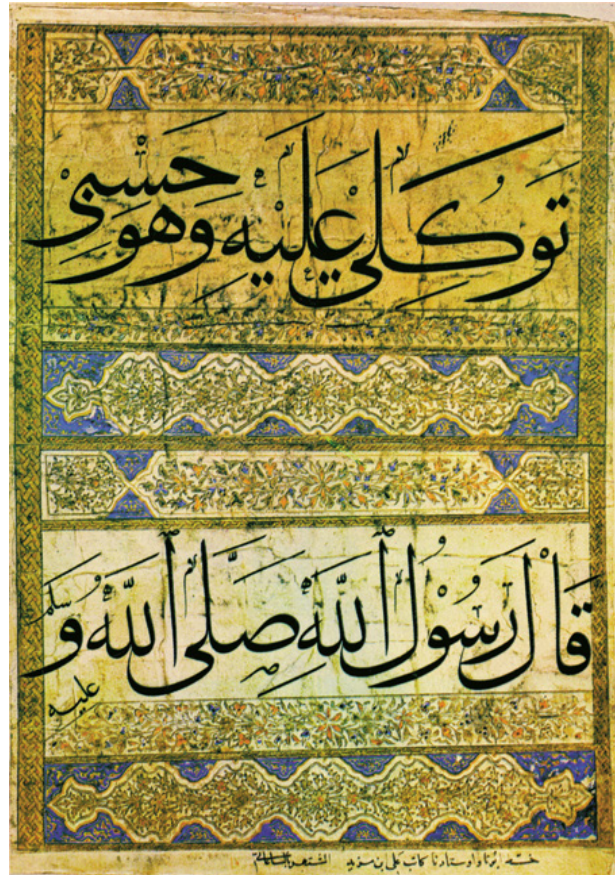 توكلي عليه وهو حسبي
قال رسول الله صلى الله عليه وسلم